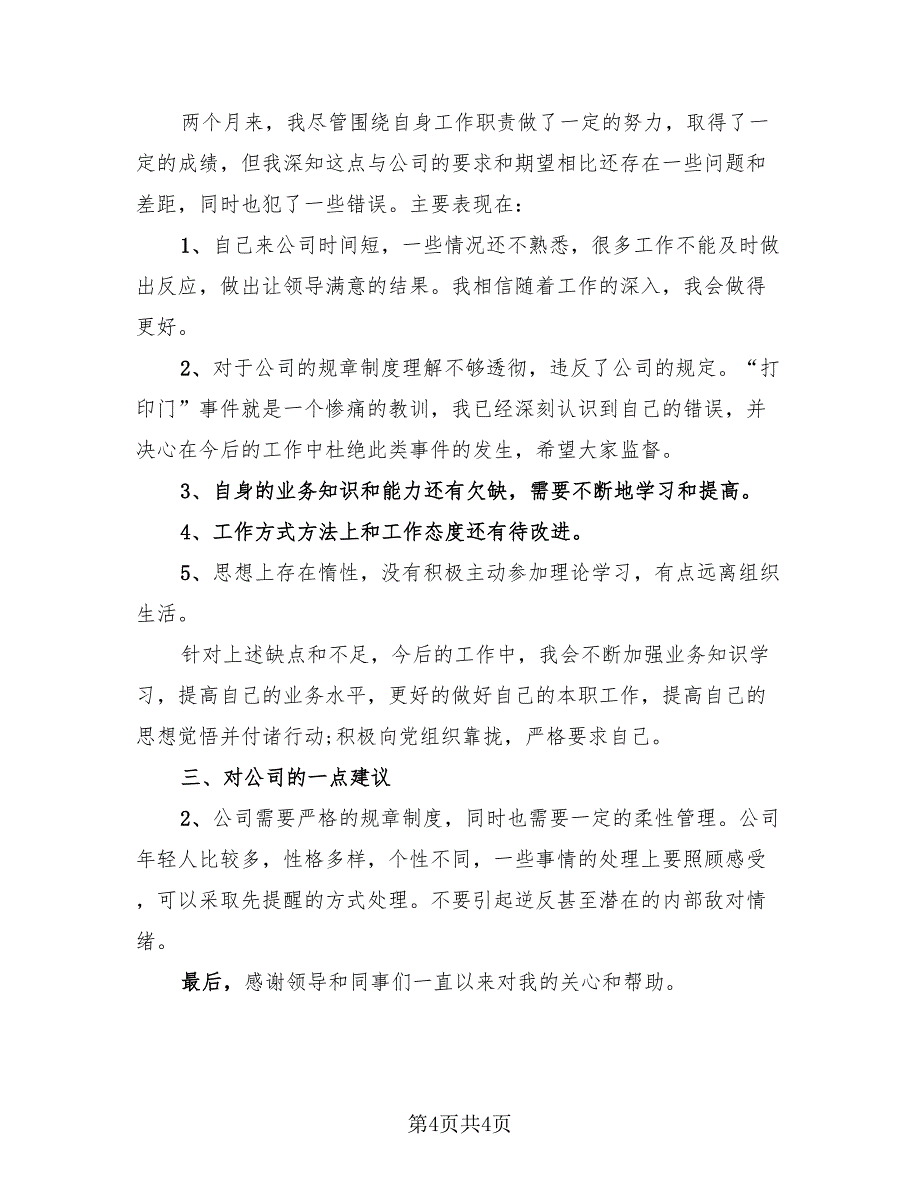 两个月来，我尽管围绕自身工作职责做了一定的努力，取得了一
定的成绩，但我深知这点与公司的要求和期望相比还存在一些问题和
差距，同时也犯了一些错误。主要表现在：
1、自己来公司时间短，一些情况还不熟悉，很多工作不能及时做
出反应，做出让领导满意的结果。我相信随着工作的深入，我会做得
更好。
2、对于公司的规章制度理解不够透彻，违反了公司的规定。“打
印门”事件就是一个惨痛的教训，我已经深刻认识到自己的错误，并
决心在今后的工作中杜绝此类事件的发生，希望大家监督。
3、自身的业务知识和能力还有欠缺，需要不断地学习和提高。
4、工作方式方法上和工作态度还有待改进。
5、思想上存在惰性，没有积极主动参加理论学习，有点远离组织
生活。
针对上述缺点和不足，今后的工作中，我会不断加强业务知识学
习，提高自己的业务水平，更好的做好自己的本职工作，提高自己的
思想觉悟并付诸行动;积极向党组织靠拢，严格要求自己。
三、对公司的一点建议
2、公司需要严格的规章制度，同时也需要一定的柔性管理。公司
年轻人比较多，性格多样，个性不同，一些事情的处理上要照顾感受
，可以采取先提醒的方式处理。不要引起逆反甚至潜在的内部敌对情
绪。
最后，感谢领导和同事们一直以来对我的关心和帮助。
第4页共4页